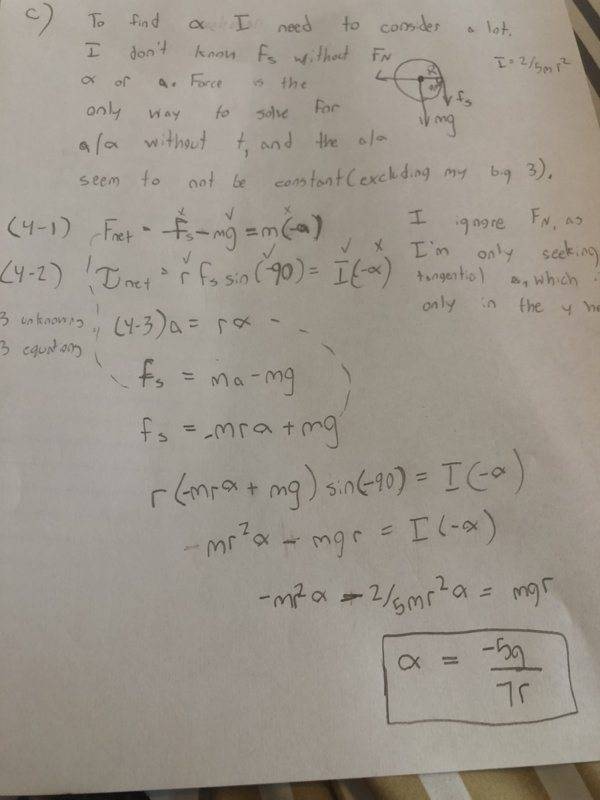 c) To find α I need to consider a lot.
I don't know fs without
α or a. Force is the
only way to solve for
a/α without t, and the a/α
seem to not be constant (excluding my big 3).
FN
I = 2/5mr²
fs
mg
(4-1) Fnet = fs - mg = m(-a)
(4-2) τnet = r fs sin(-90) = I(-α)
3 unknowns
3 equations
(4-3) a = rα
I ignore FN, as
I'm only seeking
tangential a, which i
only in the y
fs = ma - mg
fs = -mrα + mg
r(-mrα + mg) sin(-90) = I(-α)
-mr²α - mgr = I(-α)
-mr²α - 2/5mr²α = mgr
α = -5g/7r